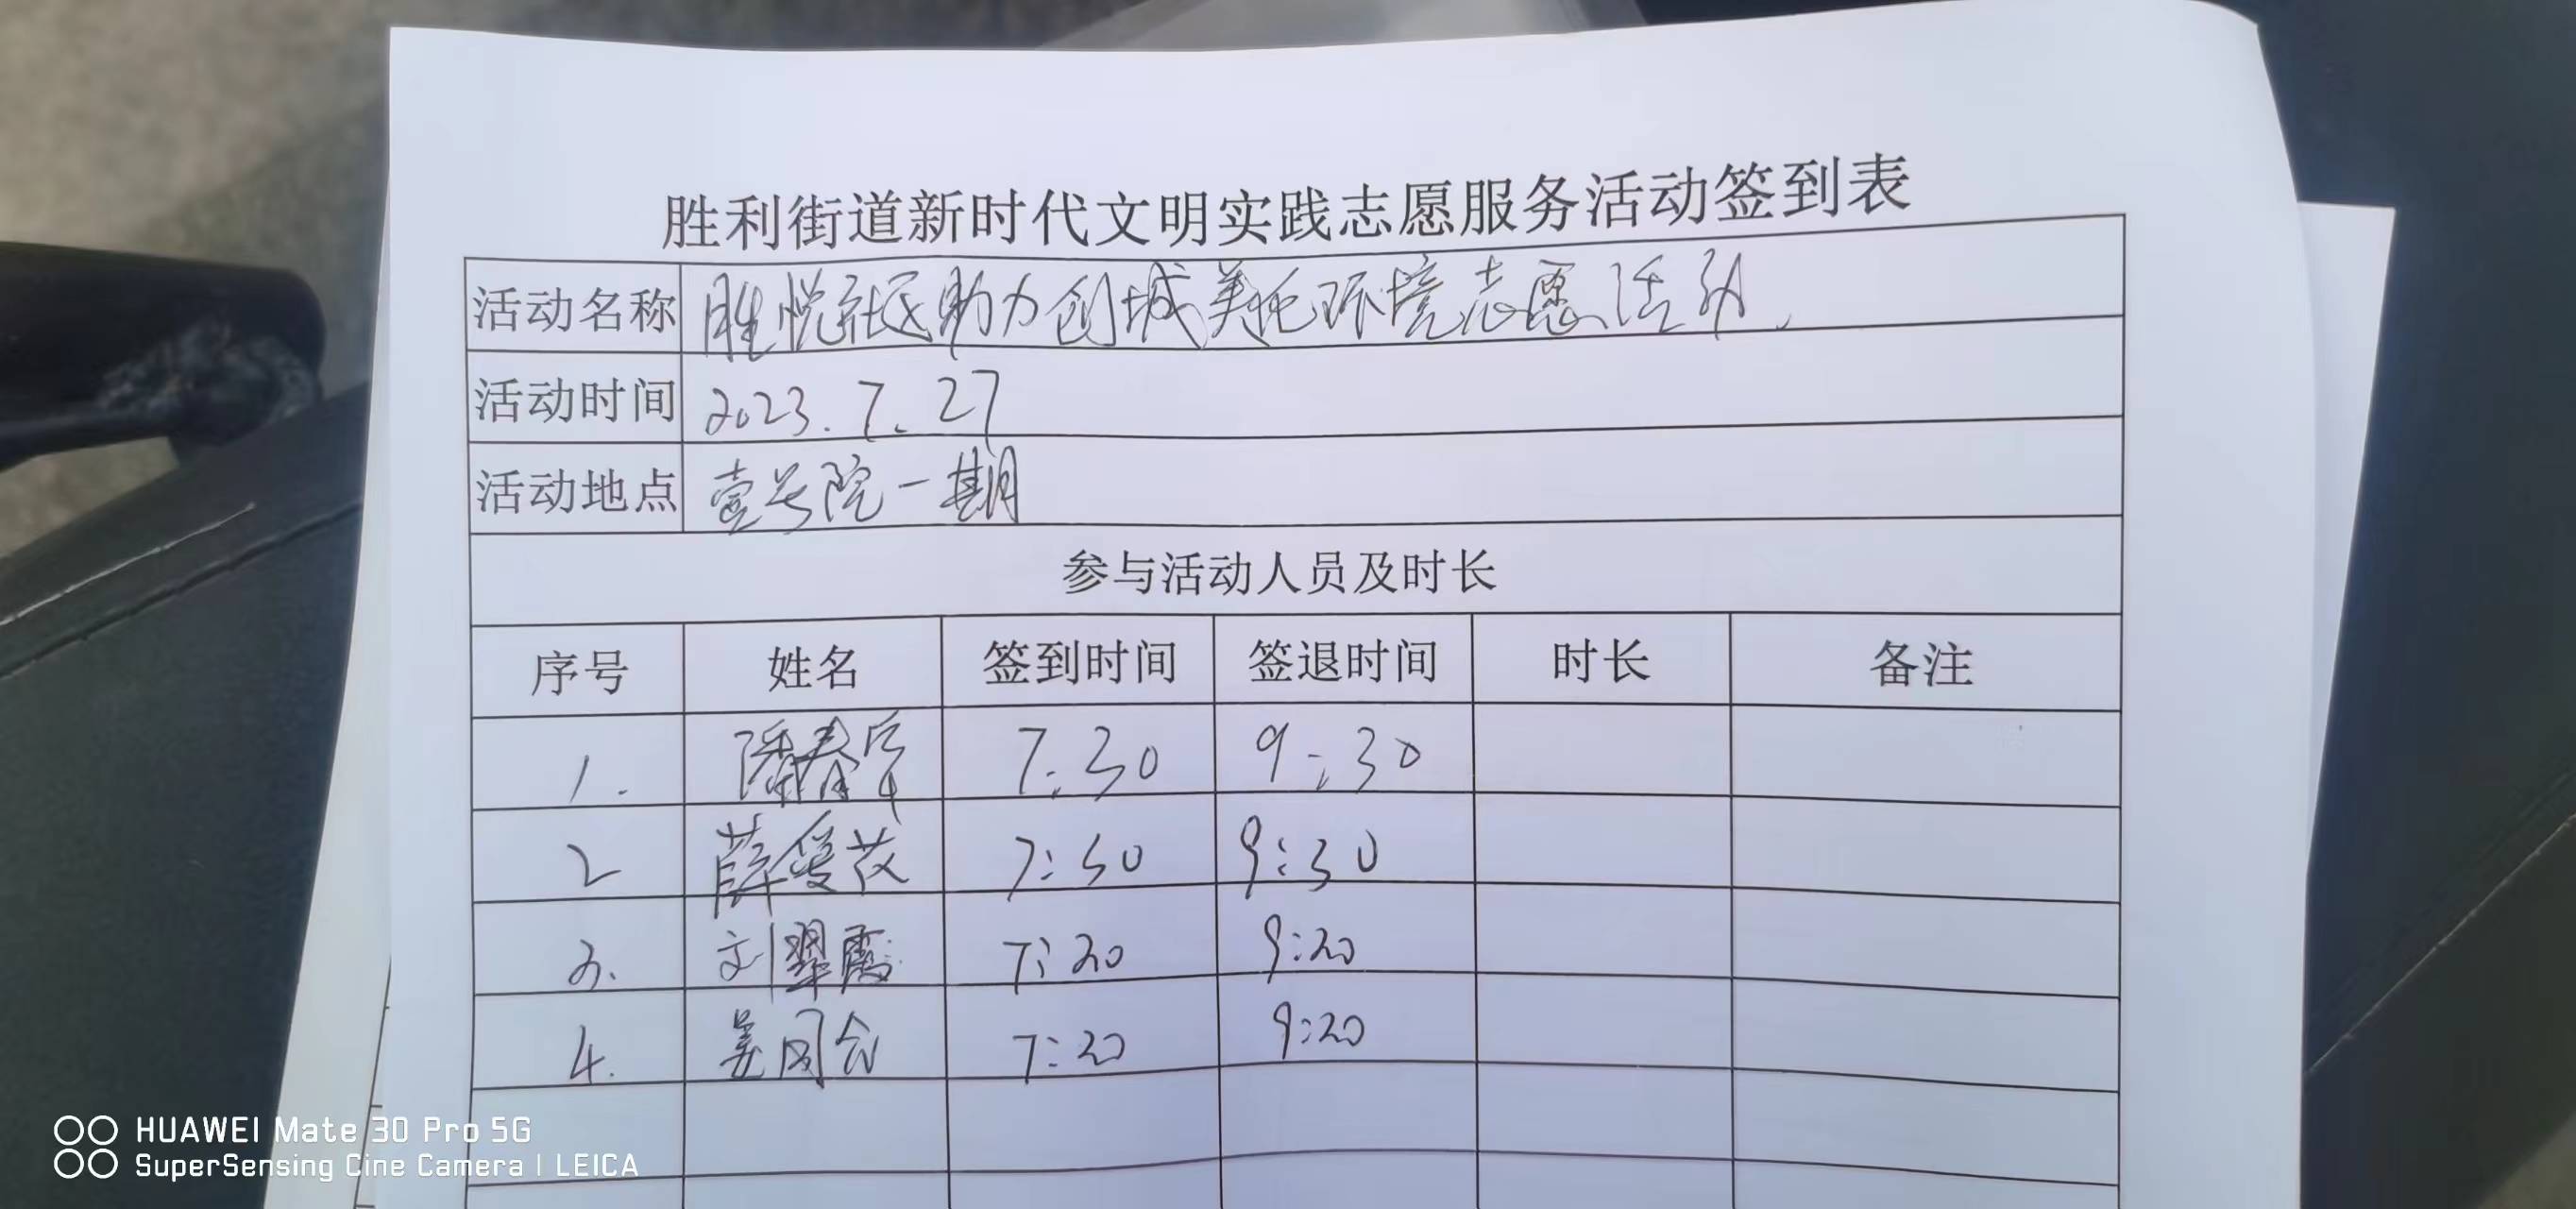 胜利街道新时代文明实践志愿服务活动签到表
活动名称 胜悦社区助力创城美化环境志愿活动
活动时间 2023.7.27
活动地点 壹号院一期
参与活动人员及时长
序号 姓名 签到时间 签退时间 时长 备注
1. 7:30 9:30
2 薛爱花 7:30 9:30
3. 刘翠霞 7:20 9:20
4. 姜同会 7:20 9:20
HUAWEI Mate 30 Pro 5G
SuperSensing Cine Camera | LEICA